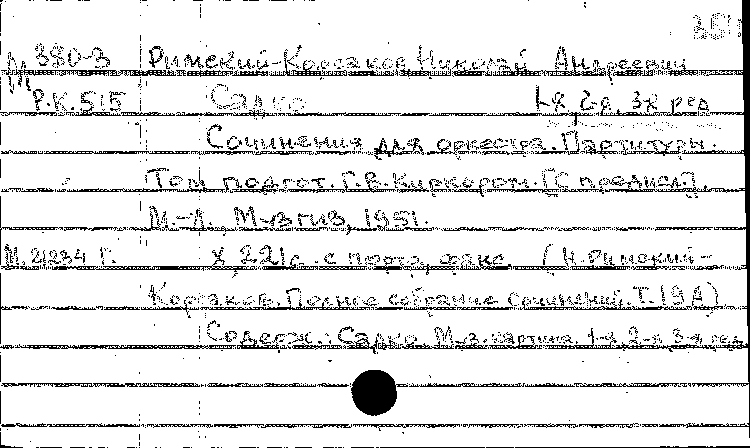 М 380-3 Римский-Корсаков, Николай Андреевич
Р.К.515 Садко 1-я, 2-я, 3-я ред
Сочинения для оркестра. Партитуры.
Том подгот. Г.В. Киркором. [С предисл.].
М.-Л., Музгиз, 1951.
М.21234 Г. X, 221с. с портр., факс. (Н. Римский-
Корсаков. Полное собрание сочинений. Т. 19А)
Содерж.: Садко. Муз. картина. 1-я, 2-я, 3-я ред.